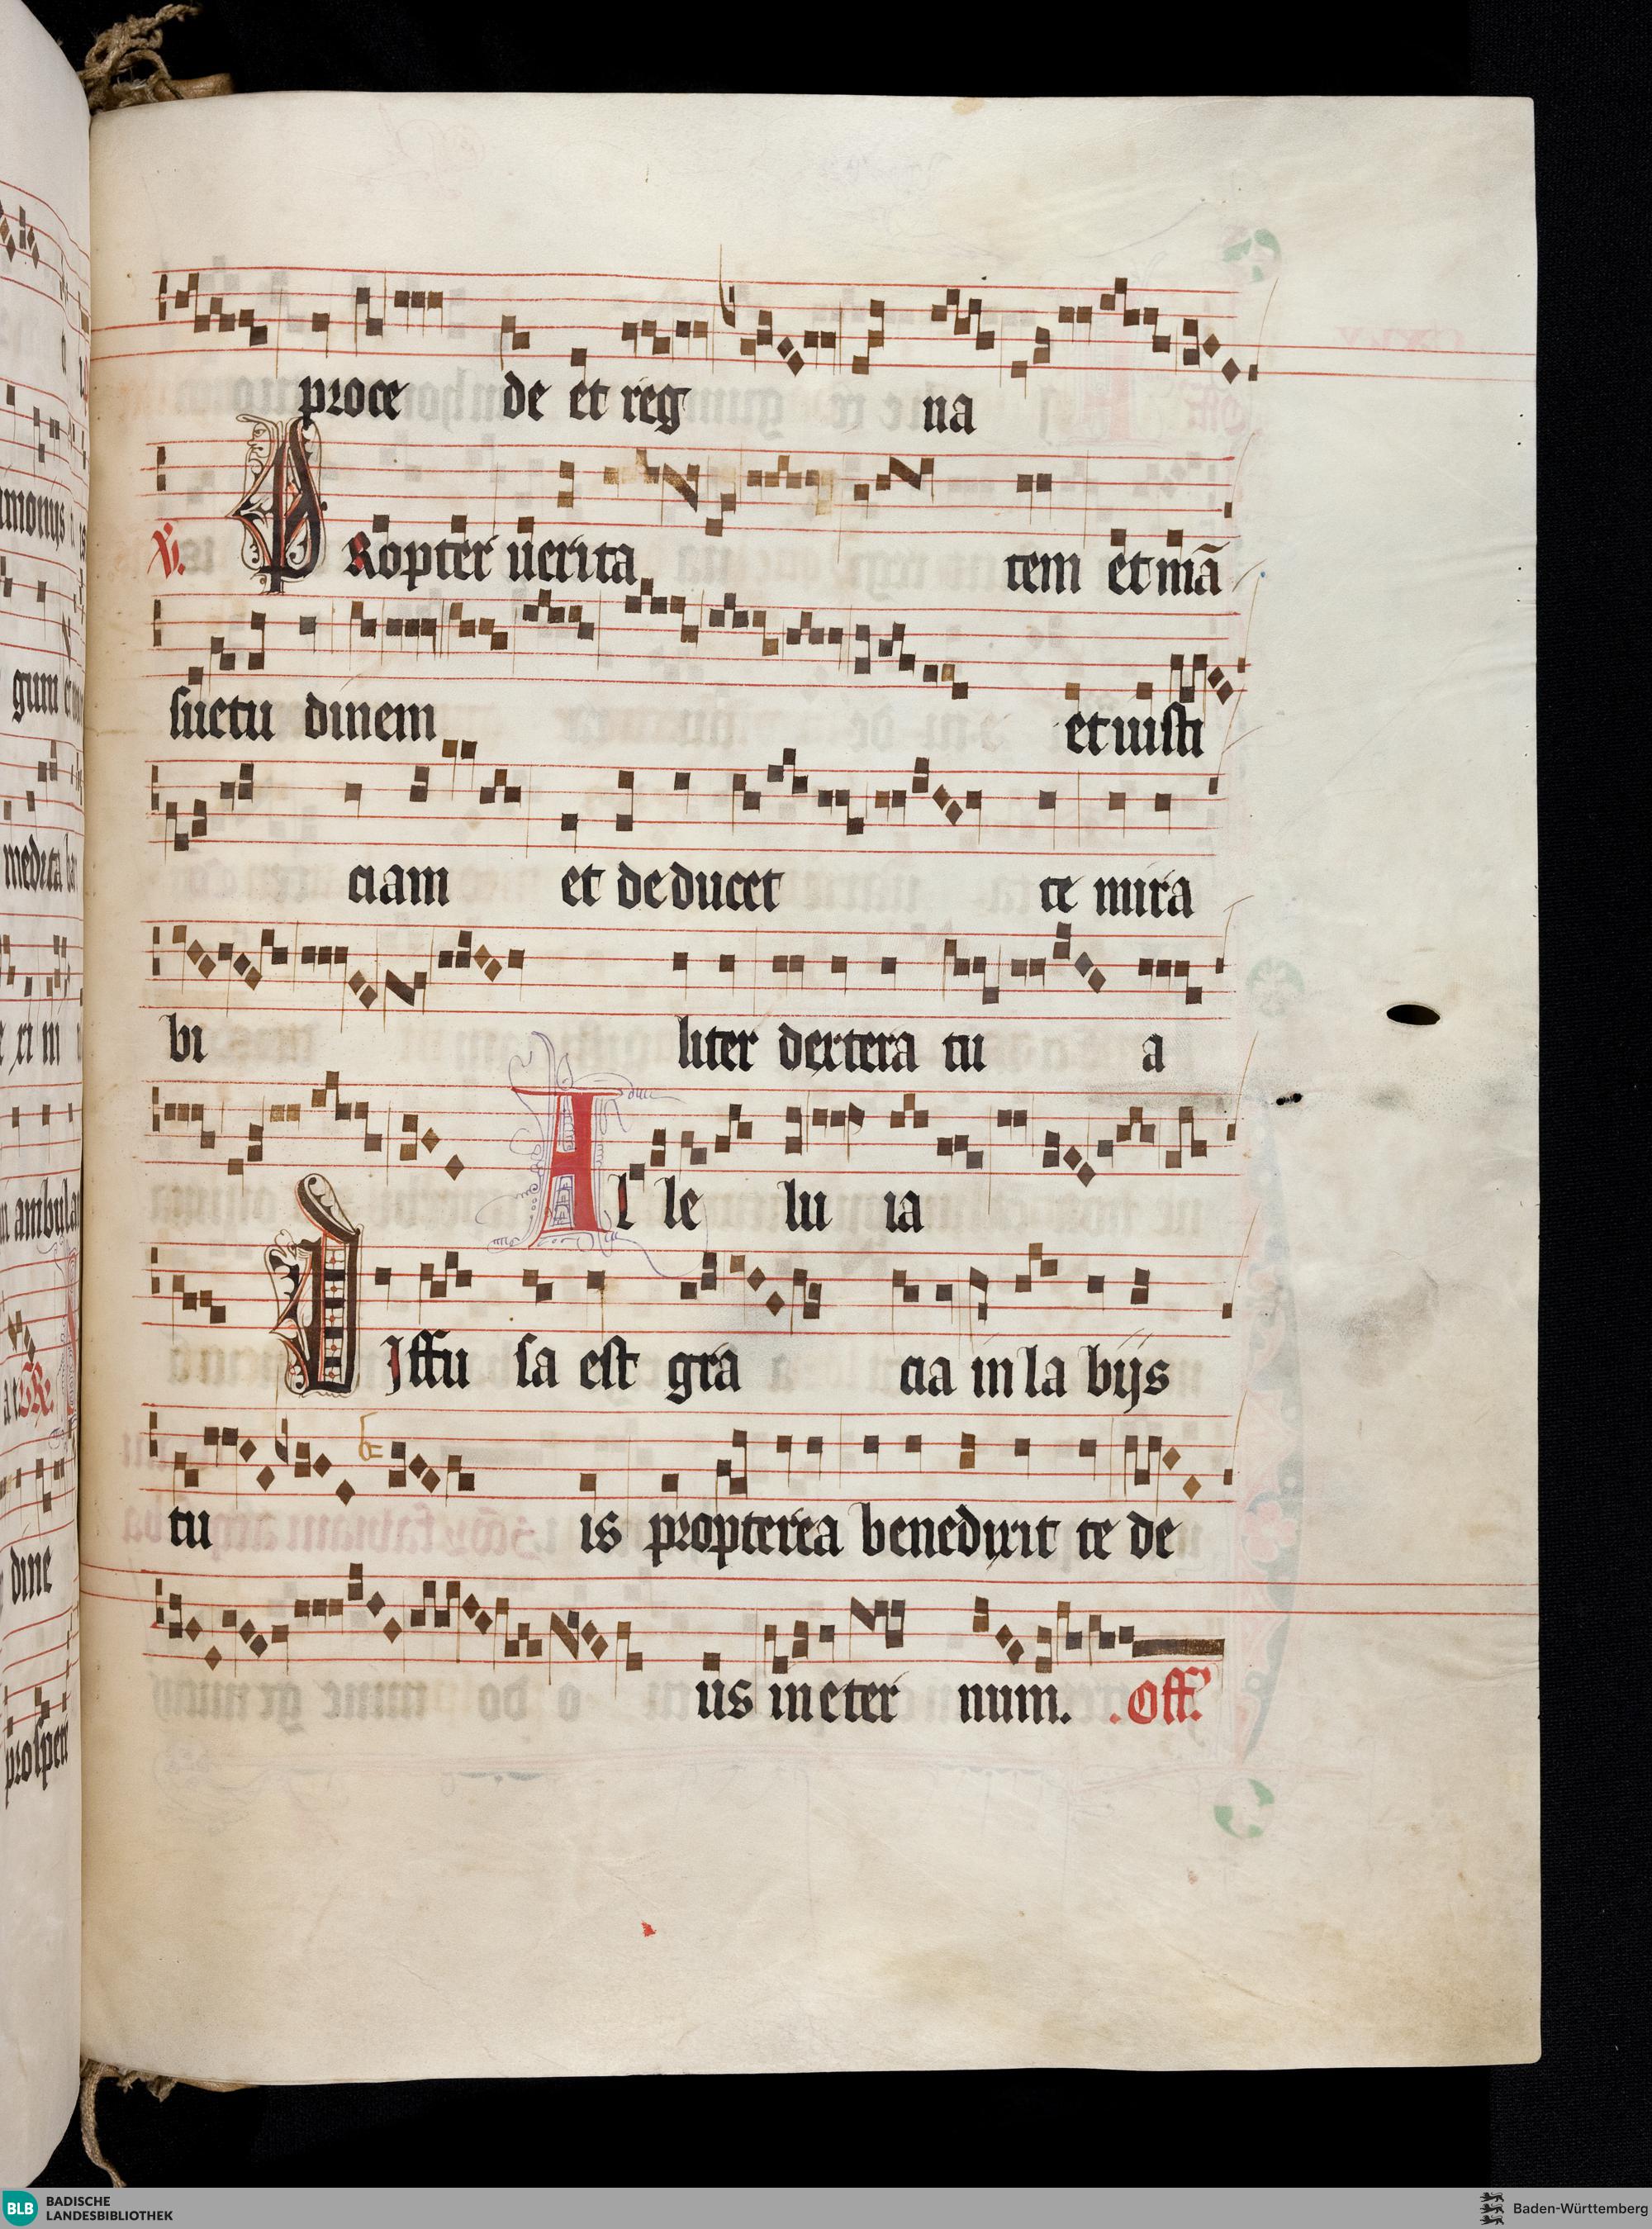 proce de et reg na
V. PRopter uerita tem et mā
suetu dinem et iusti
ciam et deducet te mira
bi liter dextera tu a
Al le lu ia
DIffu sa est gra cia in la bijs
tu is propterea benedixit te de
us in eter num. .Off.
amonijs
gum
medita
xi m
m ambula
a R.
dine
prosper
BLB BADISCHE
LANDESBIBLIOTHEK
Baden-Württemberg